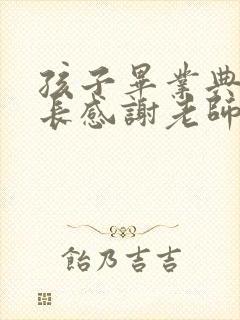 孩子畢業典
長感謝老師
飴乃吉吉